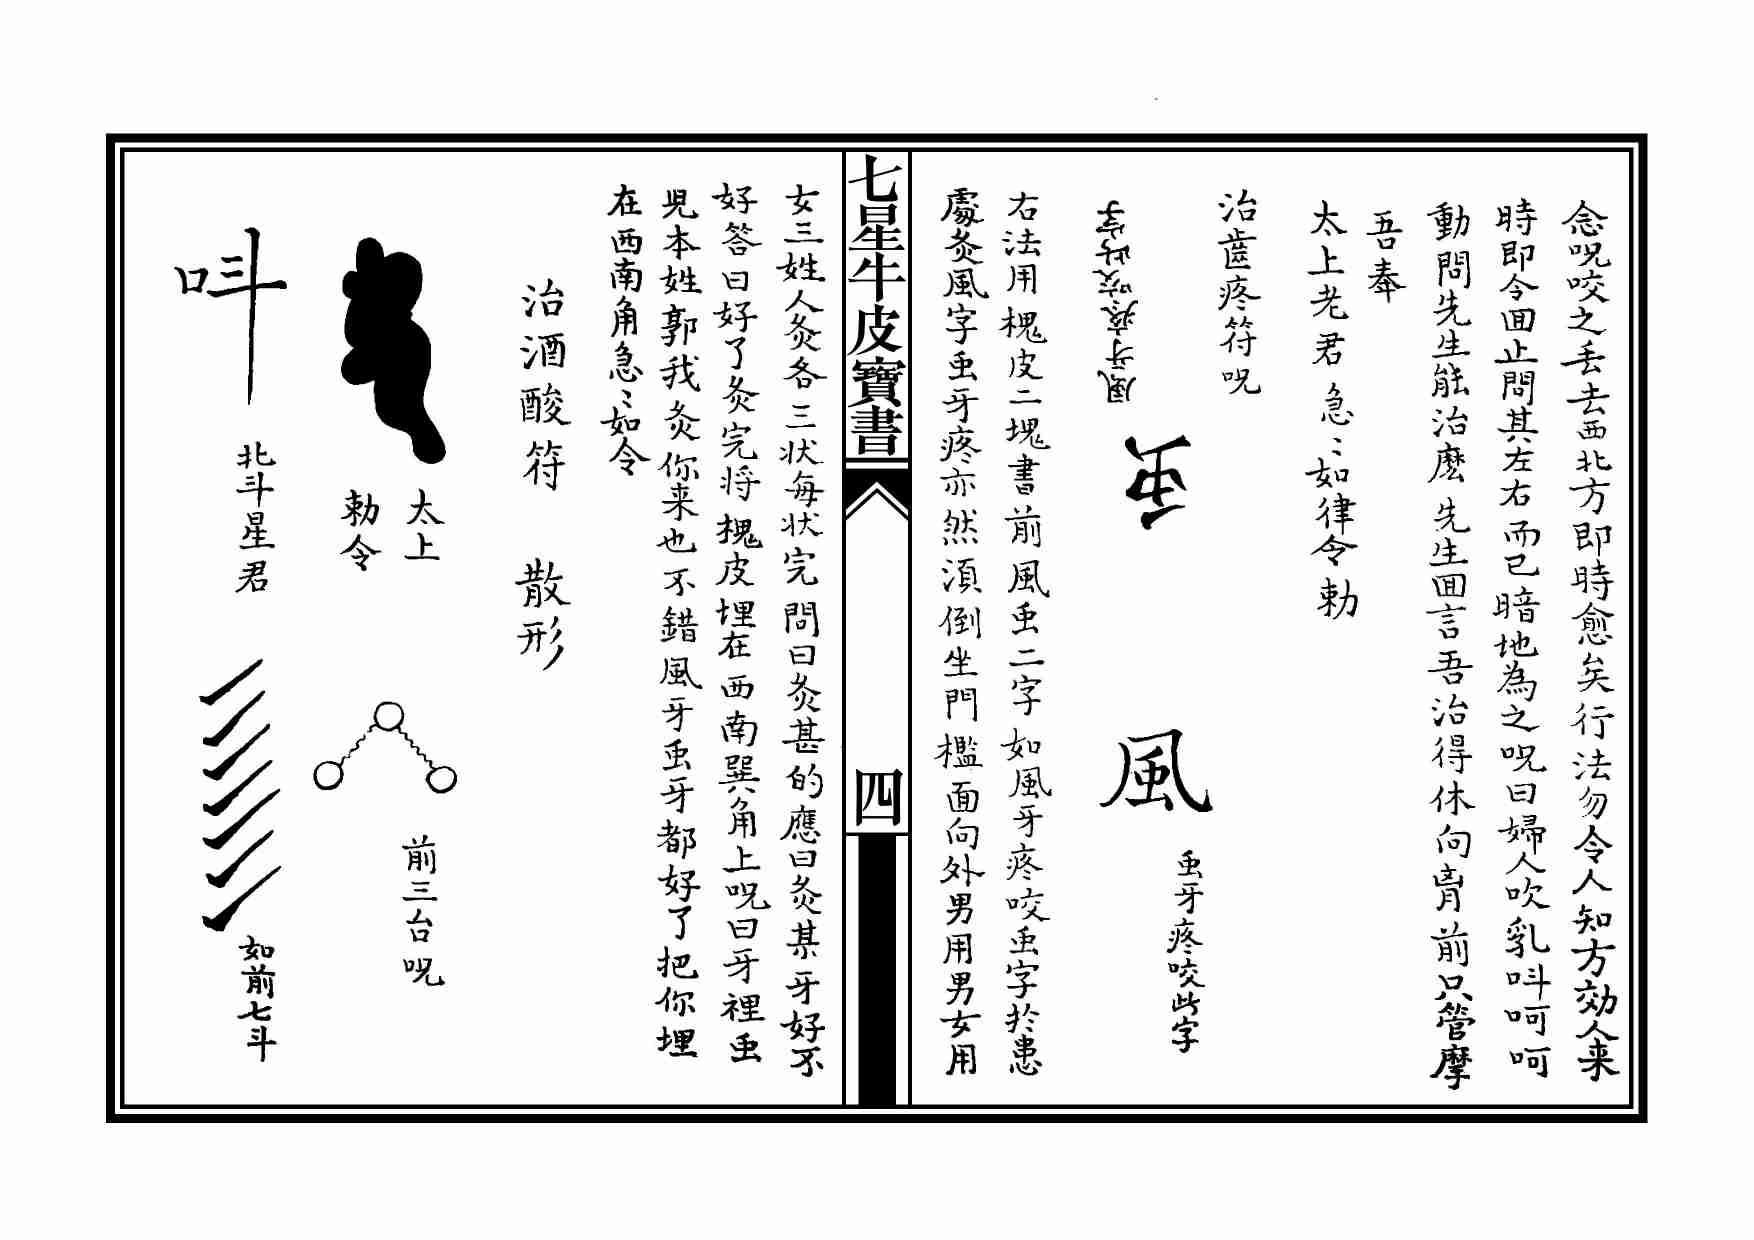 念呪咬之丢去西北方即時愈矣行法勿令人知方効人来
時即令面止問其左右而已暗地為之呪曰婦人吹乳呌呵呵
動問先生能治麽先生回言吾治得休向胷前只管摩
吾奉
太上老君急〻如律令勅
治齒疼符呪
風牙疼咬此字
䖝
風
䖝牙疼咬此字
右法用槐皮二塊書前風䖝二字如風牙疼咬䖝字於患
處灸風字䖝牙疼亦然湏倒坐門檻面向外男用男女用
七星牛皮寶書
四
女三姓人灸各三状每状完問曰灸甚的應曰灸某牙好不
好答曰好了灸完将槐皮埋在西南巽角上呪曰牙裡䖝
兒本姓郭我灸你来也不錯風牙䖝牙都好了把你埋
在西南角急〻如令
治酒酸符 散形
太上
勅令
前三台呪
呌
北斗星君
如前七斗